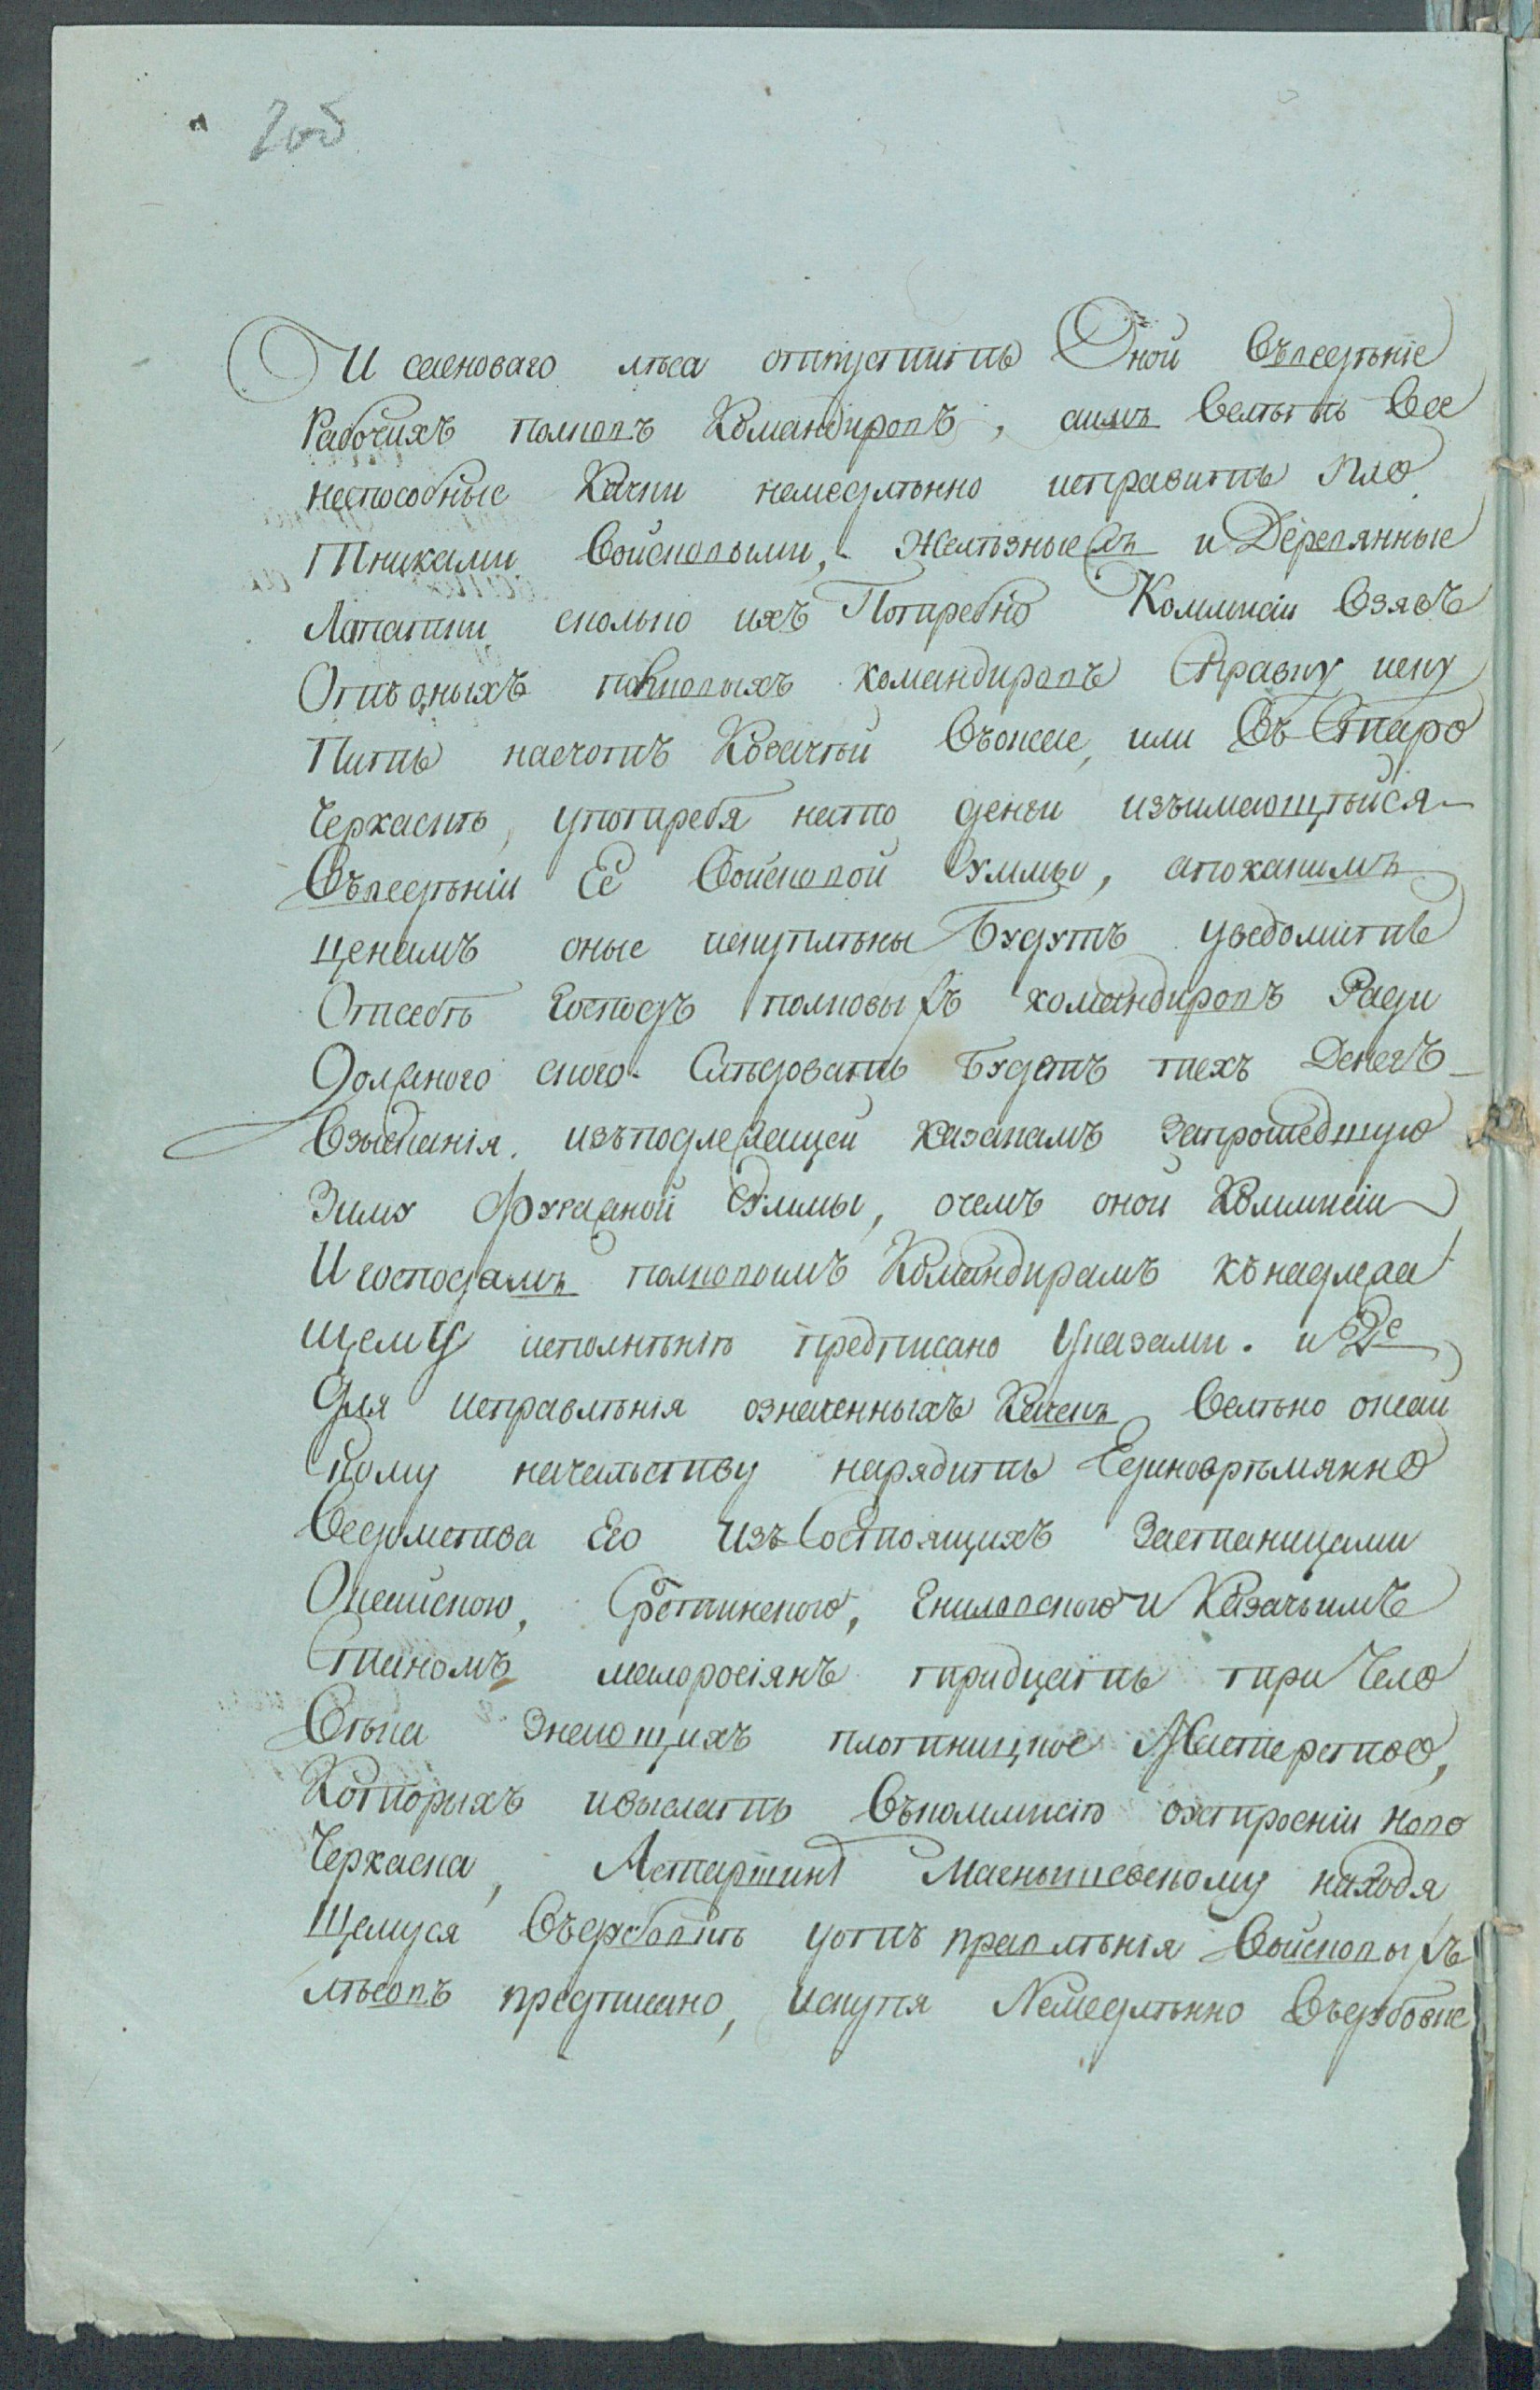 2об
И сосноваго лѣса отпустить Оной Въведѣніе
Рабочихъ полковъ Командировъ, аимъ Велѣть Все
неспособные Качки немедлѣнно исправить Пло
Тниками Войсковыми, Желѣзныежъ и Деревянные
Лопатки сколько ихъ Потребно Коммисіи Взявъ
Отъ оныхъ полковыхъ командировъ Справку иску
Пить насчотъ Козачей Въонже, или Въ Старо
Черкаскѣ, употребя нато денги изъимающѣйся
Въведѣніи Её Войсковой Суммы, апокакимъ
ценамъ оные искуплѣны Будутъ уведомить
Отсебѣ Господъ полковыхъ командировъ Ради
Должного ского Слѣдовать Будетъ техъ Денегъ
Взысканія, изъподлежащей казакамъ Запрошедшую
Зиму Фуражной Суммы, очемъ оной Коммисіи
И господамъ полковымъ Командирамъ кънадлежа
щему исполнѣнію предписано Указами. и 2е
Для исправлѣнія означенныхъ Качекъ Велѣно аксай
скому начальству нарядить Единоврѣмянно
Ведомства Его изъ Состоящихъ Застаницами
Аксайскою, Бѣ Кобякинскою и Козачьимъ
Станомъ малоросіянъ тридцать три Чело
Вѣка Знающихъ плотницкое Мастерство,
Которыхъ ивыслать Въкоммисію оустроеніи Ново
Черкаска, Астаршинѣ Маснышевскому находя
Щемуся Въдубовкѣ уотправлѣнія Войсковыхъ
лѣсовъ предписано, Искупя Немедлѣнно Въдубовке